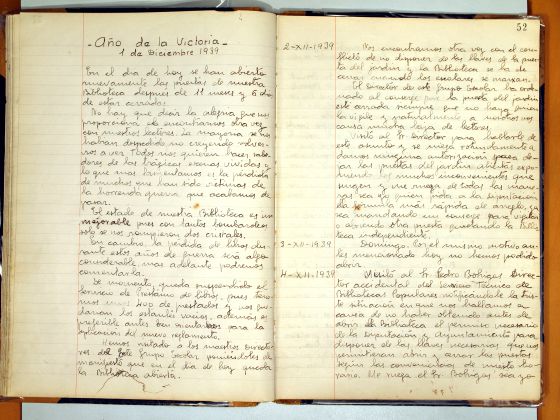 - Año de la Victoria -
1 de Diciembre 1939
En el día de hoy se han abierto
nuevamente las puertas de nuestra
Biblioteca después de 11 meses y 6 días
de estar cerrada.
No hay que decir la alegría que nos
proporciona de encontrarnos otra vez
con nuestros lectores. La mayoría se nos
habían despedido no creyendo volver-
nos a ver. Todos nos quieren hacer sabe-
dores de las tragedias vividas y
lo que mas lamentamos es la pérdida
de muchos que han sido víctimas de
la horrenda guerra que acabamos de
pasar.
El estado de nuestra Biblioteca es in-
mejorable pues con tantos bombardeos
solo se nos rompieron dos cristales.
En cambio, la pérdida de libros du-
rante estos años de guerra será algo
considerable, mas adelante podremos
comentarla.
De momento queda suspendido el
servicio de Préstamo de libros, pues tene-
mos unos 400 de prestados y nos que-
darían los estantes vacíos, además es
preferible antes bien orientados para la
aplicación del nuevo reglamento.
Hemos visitado a los maestros directo-
res del Grupo Escolar poniéndoles de
manifiesto que en el día de hoy queda
la Biblioteca abierta.
52
2-XII-1939 Nos encontramos otra vez con el con-
flicto de no disponer de las llaves de la puerta
del jardín y la Biblioteca se ha de
cerrar cuando los escolares se marchan.
El director de este Grupo Escolar ha orde-
nado al conserje que la puerta del jardín
esté cerrada siempre que no haya quien
la vigile y naturalmente a nosotros nos
causa mucha baja de lectores.
Visito al Sr Director para hablarle de
este asunto y se niega rotundamente a
darnos ninguna autorización para de-
jar las puertas del jardín abiertas expo-
niendo los muchos inconvenientes que
surgen y me ruega de todas las mane-
ras sea yo quien pida a la Diputación
la fórmula más rápida de arreglo, ya
sea mandando un conserje para vigilar
o abriendo otra puerta quedando la Biblio-
teca independiente.
3-XII-1939 Domingo. Por el mismo motivo an-
tes mencionado hoy, no hemos podido
abrir.
4-XII-1939 Visito al Sr Pedro Bohigas director
accidental del Servicio Técnico de
Bibliotecas Populares notificándole la tris-
te situación en que nos hallamos a
causa de no haber obtenido antes de
abrir la Biblioteca el permiso necesario
de la Diputación y Ayuntamiento para
disponer de las llaves necesarias que nos
permitieran abrir y cerrar las puertas
según las conveniencias de nuestro ho-
rario. Me ruega el Sr. Bohigas sea yo